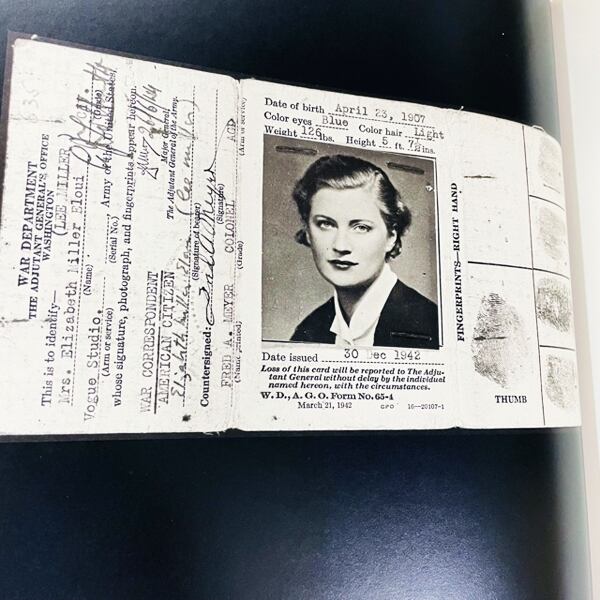 WAR DEPARTMENT
THE ADJUTANT GENERAL'S OFFICE
WASHINGTON
This is to identify—
(LEE MILLER)
Mrs. Elizabeth Miller Eloui
(Name)
(Grade)
Vogue Studio
(Arm or service)
(Serial No.)
Army of the United States,
whose signature, photograph, and fingerprints appear hereon.
Major General
The Adjutant General of the Army.
WAR CORRESPONDENT
AMERICAN CITIZEN
(Lee Miller)
(Signature of bearer)
Countersigned:
(Signature)
FRED A. MEYER COLONEL AGD
(Name printed) (Grade) (Arm or service)
Date of birth April 23, 1907
Color eyes Blue Color hair Light
Weight 126 lbs. Height 5 ft. 7½ ins.
Date issued 30 Dec 1942
Loss of this card will be reported to The Adju-
tant General without delay by the individual
named hereon, with the circumstances.
W. D., A. G. O. Form No. 65-4
March 21, 1942 GPO 16—20107-1
FINGERPRINTS—RIGHT HAND
THUMB